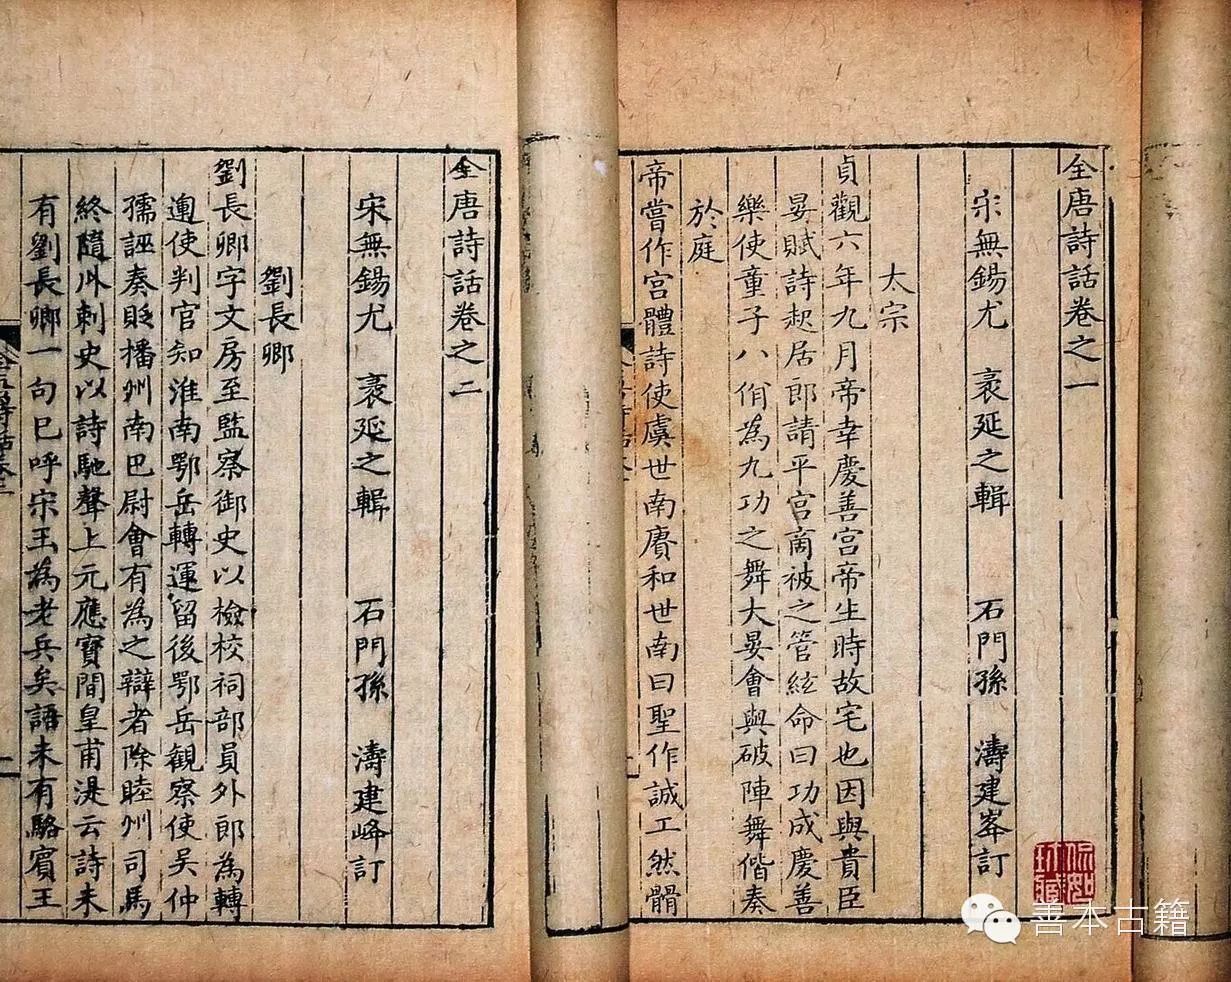 全唐詩話卷之一
宋無錫尤 袤延之輯 石門孫 濤建峯訂
太宗
貞觀六年九月帝幸慶善宮帝生時故宅也因與貴臣
晏賦詩起居郎請平宮商被之管絃命曰功成慶善
樂使童子八佾為九功之舞大晏會與破陣舞偕奏
於庭
帝嘗作宮體詩使虞世南賡和世南曰聖作誠工然體
全唐詩話卷之二
宋無錫尤 袤延之輯 石門孫 濤建峰訂
劉長卿
劉長卿字文房至監察御史以檢校祠部員外郎為轉
運使判官知淮南鄂岳轉運留後鄂岳觀察使吳仲
孺誣奏貶播州南巴尉會有為之辯者除睦州司馬
終隨州刺史以詩馳聲上元應寶間皇甫湜云詩未
有劉長卿一句已呼宋玉為老兵矣語未有駱賓王
善本古籍